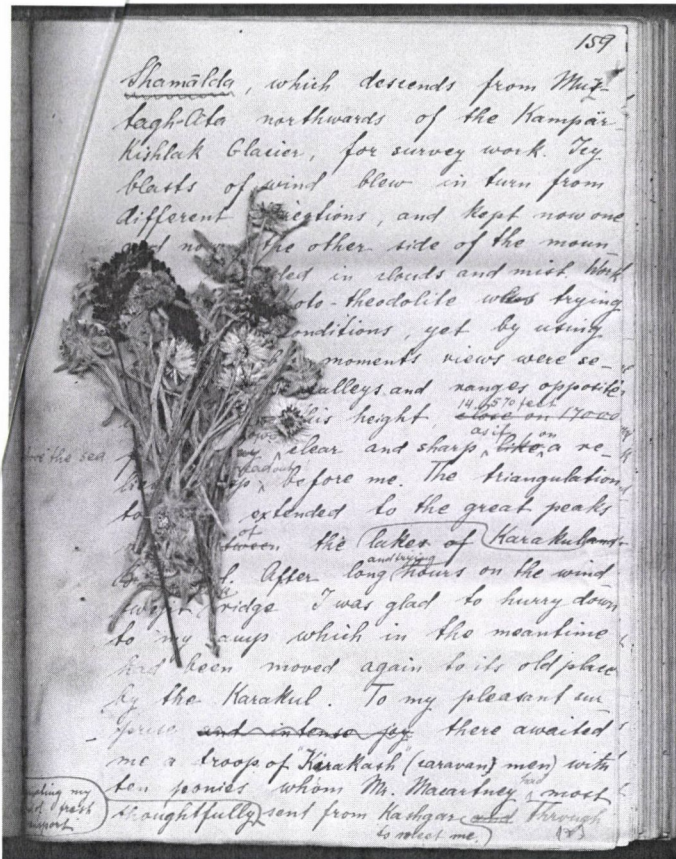 159
Shamālda, which descends from Muz-
tagh-Ata northwards of the Kampār-
Kishlak Glacier, for survey work. Icy
blasts of wind blew in turn from
different directions, and kept now one
and now the other side of the moun
led in clouds and mist. Work
oto-theodolite was trying
onditions, yet by using
moments views were se-
valleys and ranges opposite
14,570 feet
his height, close on 17000
as if on
clear and sharp like a re-
above the sea
lead out
before me. The triangulation
extended to the great peaks
of
tween the lakes of Karakul and
and trying
l. After long hours on the wind
swept ridge I was glad to hurry down
to my camp which in the meantime
had been moved again to its old place
by the Karakul. To my pleasant sur
prise and intense joy there awaited
me a troop of "Kirakash" (caravan men) with
had
ten ponies whom Mr. Macartney most
thoughtfully sent from Kashgar and Through
to meet me.
my
fresh